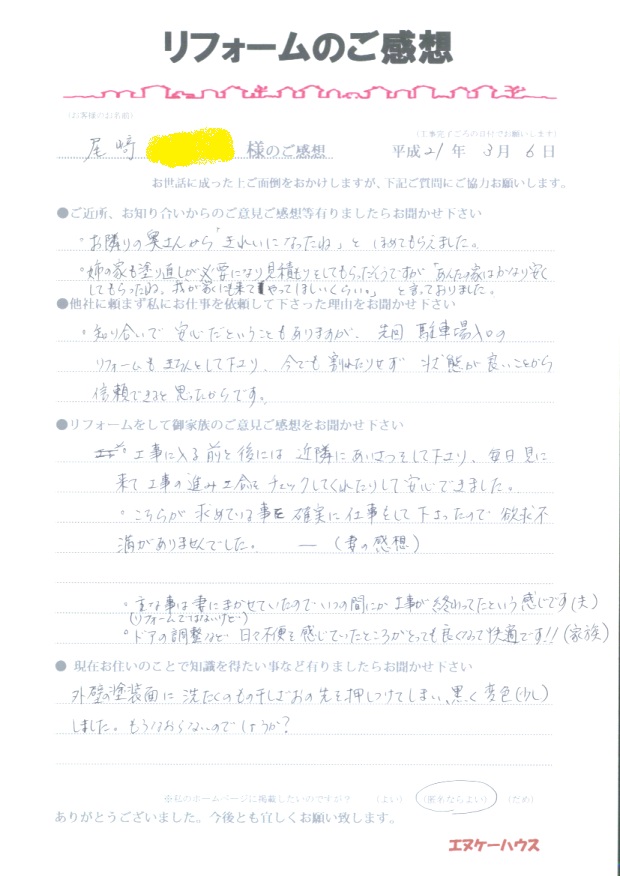 リフォームのご感想
(お客様のお名前)
(工事完了ごろの日付でお願いします)
尾崎 様のご感想 平成21年3月6日
お世話に成った上ご面倒をおかけしますが、下記ご質問にご協力お願いします。
●ご近所、お知り合いからのご意見ご感想等有りましたらお聞かせ下さい
・お隣りの奥さんから「きれいになったね」と ほめてもらえました。
・姉の家も塗り直しが必要になり見積もりをしてもらったそうですが「あんたの家はかなり安く
してもらったね。我が家にも来てやってほしいくらい。」と言っておりました。
●他社に頼まず私にお仕事を依頼して下さった理由をお聞かせ下さい
・知り合いで安心だということもありますが、先回 駐車場入口の
リフォームもきちんとして下さり、今でも割れたりせず 状態が良いことから
信頼できると思ったからです。
●リフォームをして御家族のご意見ご感想をお聞かせ下さい
工事に入る前と後には 近隣にあいさつをして下さり、毎日見に
来て工事の進み工合をチェックしてくれたりして安心できました。
・こちらが求めている事を確実に仕事をして下さったので欲求不
満がありませんでした。 ―(妻の感想)
・主な事は妻にまかせていたのでいつの間にか工事が終わってたという感じです(夫)
(リフォームではないけど)
・ドアの調整など 日々不便を感じていたところがとっても良くなって快適です!!(家族)
● 現在お住いのことで知識を得たい事など有りましたらお聞かせ下さい
外壁の塗装面に 洗たくもの干しざおの先を押しつけてしまい、黒く変色(少し)
しました。もうなおらないのでしょうか?
※私のホームページに掲載したいのですが? (よい) (匿名ならよい) (だめ)
ありがとうございました。今後とも宜しくお願い致します。
エヌケーハウス